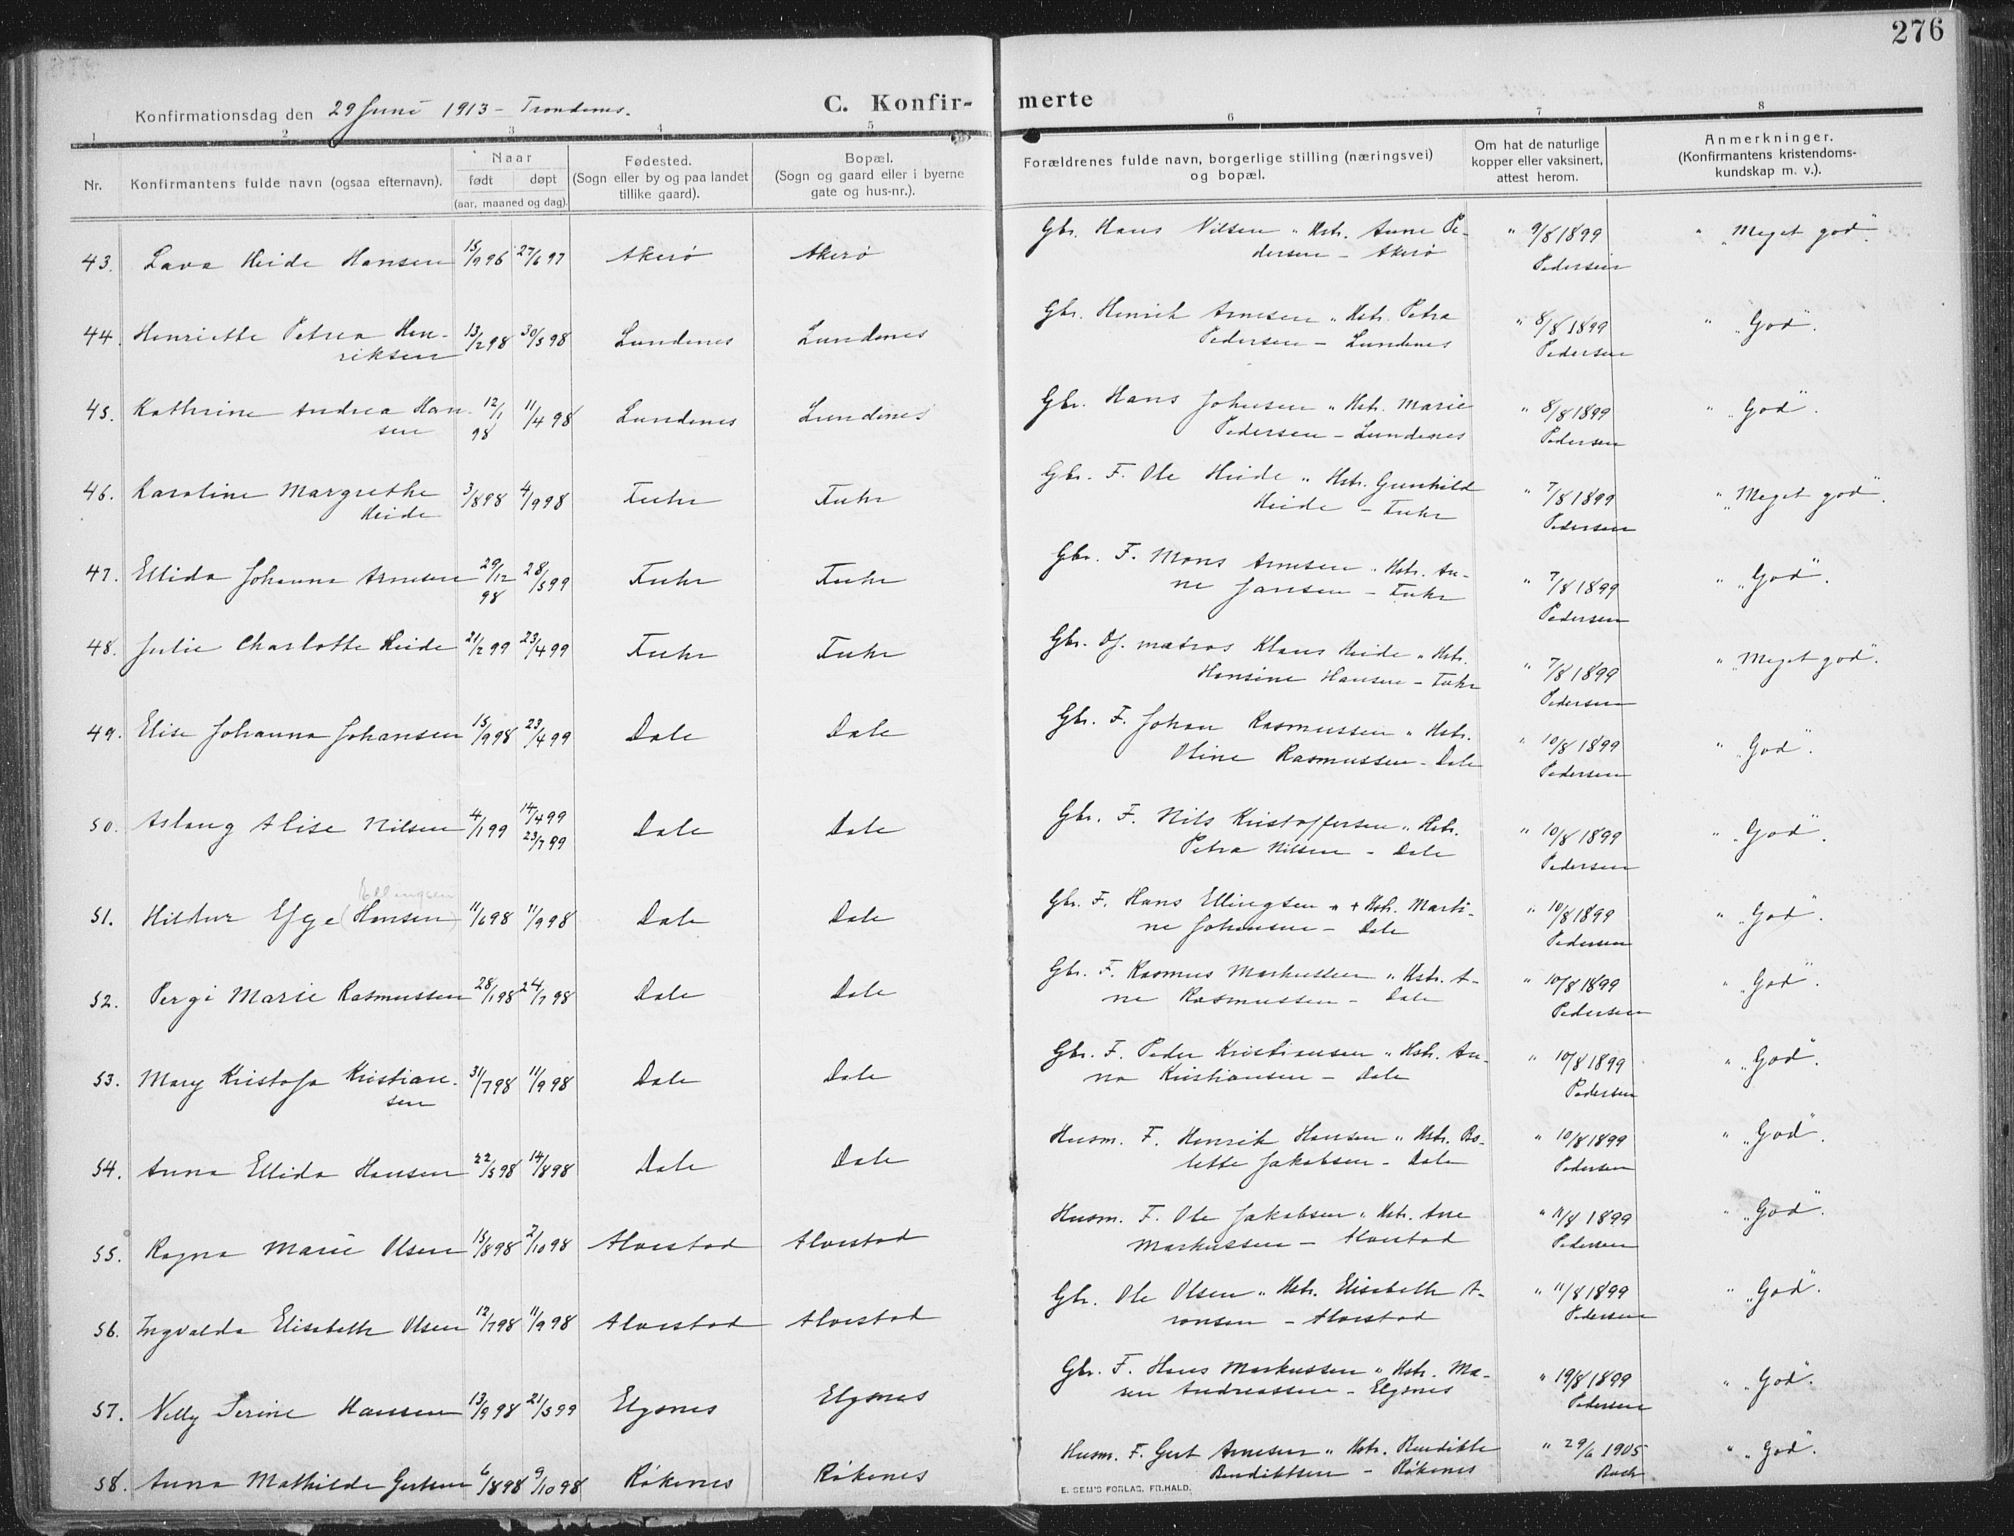 276
Konfirmationsdag den 29 Juni 1913 – Trondenes.
C. Konfir- merte
1 2 3 4 5 6 7 8
Nr.
Konfirmantens fulde navn (ogsaa efternavn).
Naar
født døpt
(aar, maaned og dag).
Fødested.
(Sogn eller by og paa landet
tillike gaard).
Bopæl.
(Sogn og gaard eller i byerne
gate og hus-nr.).
Forældrenes fulde navn, borgerlige stilling (næringsvei)
og bopæl.
Om hat de naturlige
kopper eller vaksinert,
attest herom.
Anmerkninger.
(Konfirmantens kristendoms-
kundskap m. v.).
43. Lava Heide Hansen 15/9 96 27/6 97 Akerø Akerø Gbr. Hans Nilsen „ Hstr. Anne Pe- „ 9/8 1899 „ „Meget god".
dersen – Akerø Pedersen
44. Henriette Petrea Hen- 13/2 98 30/5 98 Lundenes Lundenes Gbr. Henrik Arnesen „ Hstr. Petra „ 8/8 1899 „ „God".
riksen Pedersen – Lundenes Pedersen
45. Kathrine Andrea Han- 12/1 98 11/4 98 Lundenes Lundenes Gbr. Hans Johnsen „ Hstr. Marie „ 8/8 1899 „ „God".
sen Pedersen – Lundenes Pedersen
46. Karoline Margrethe 3/8 98 4/9 98 Fuhr Fuhr Gbr. F. Ole Heide „ Hstr. Gunhild „ 7/8 1899 „ „Meget god".
Heide Heide – Fuhr Pedersen
47. Ellida Johanna Arnesen 29/12 98 28/5 99 Fuhr Fuhr Gbr. F. Mons Arnesen „ Hstr. An- „ 7/8 1899 „ „God".
ne Jansen – Fuhr Pedersen
48. Julie Charlotte Heide 21/2 99 23/4 99 Fuhr Fuhr Gbr. Of. matros Klaus Heide „ Hstr. „ 7/8 1899 „ „Meget god".
Hansine Hansen – Fuhr Pedersen
49. Elise Johanna Johansen 15/9 98 23/4 99 Dale Dale Gbr. F. Johan Rasmussen „ Hstr. „ 10/8 1899 „ „God".
Oline Rasmussen – Dale Pedersen
50. Aslaug Alise Nilsen 4/1 99 14/4 99 23/7 99 Dale Dale Gbr. F. Nils Kristoffersen „ Hstr. „ 10/8 1899 „ „God".
Petra Nilsen – Dale Pedersen
Ellingsen
51. Hildur Efge (Hansen) 11/6 98 11/9 98 Dale Dale Gbr. F. Hans Ellingsen „ + Hstr. Marti- „ 10/8 1899 „ „God".
ne Johansen – Dale Pedersen
52. Pergi Marie Rasmussen 28/1 98 24/7 98 Dale Dale Gbr. F. Rasmus Markussen „ Hstr. A- „ 10/8 1899 „ „God".
ne Rasmussen – Dale Pedersen
53. Mary Kristofa Kristian- 31/7 98 11/9 98 Dale Dale Gbr. F. Peder Kristiansen „ Hstr. An- „ 10/8 1899 „ „God".
sen na Kristiansen – Dale Pedersen
54. Anna Ellida Hansen 22/5 98 14/8 98 Dale Dale Husm. F. Henrik Hansen „ Hstr. Bo- „ 10/8 1899 „ „God".
lette Jakobsen – Dale Pedersen
55. Ragna Marie Olsen 15/8 98 2/10 98 Alvestad Alvestad Husm. F. Ole Jakobsen „ Hstr. Ane „ 11/8 1899 „ „God".
Markussen – Alvestad Pedersen
56. Ingvalda Elisabeth Olsen 12/7 98 11/9 98 Alvestad Alvestad Gbr. Ole Olsen „ Hstr. Elisabeth A- „ 11/8 1899 „ „God".
ronsen – Alvestad Pedersen
57. Nelly Serine Hansen 13/9 98 21/5 99 Elgsnes Elgsnes Gbr. F. Hans Markussen „ Hstr. Ma- „ 19/8 1899 „ „God".
ren Andreassen – Elgsnes Pedersen
58. Anna Mathilde Gertsen 6/8 98 9/10 98 Røkenes Røkenes Husm. F. Gert Arnesen „ Hstr. Bendikte „ 29/6 1905 „ „God".
Bendiktsen – Røkenes Bach
E. SEM'S FORLAG, FR.HALD.